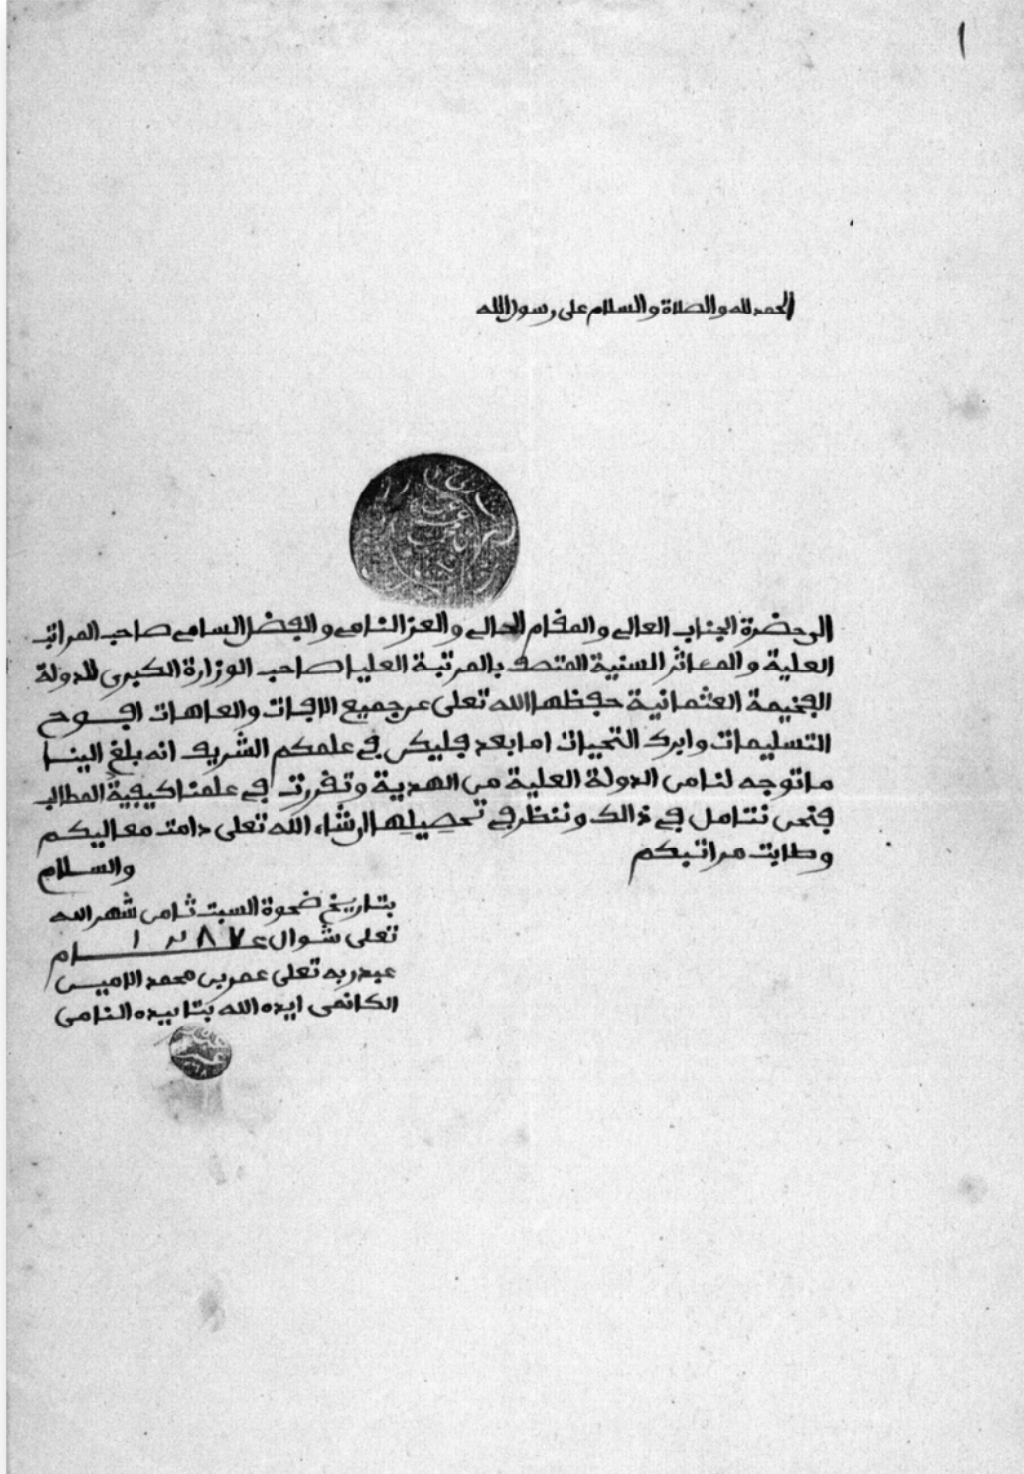 ١
الحمد لله والصلاة والسلام على رسول الله
الى حضرة الجناب العالي والمقام الحالي والعز النامي والفضل السامي صاحب المراتب
العلية والمعاثر السنية المتصف بالمرتبة العليا صاحب الوزارة الكبرى للدولة
الفخيمة العثمانية حفظها الله تعلى عن جميع الافات والعاهات افوح
التسليمات وابرك التحيات اما بعد فليكن في علمكم الشريف انه بلغ الينا
ما توجه لنا من الدولة العلية من الهدية وتقررت في علمنا كيفية المطالب
فنحن نتامل في ذالك وننظر في تحصيلها ان شاء الله تعلى دامت معاليكم
وطابت مراتبكم والسلام
بتاريخ ضحوة السبت ثامن شهر الله
تعلى شوال عام ١٢٨٧
عبد ربه تعلى عمر بن محمد الامين
الكانمى ايده الله بتاييده النامى